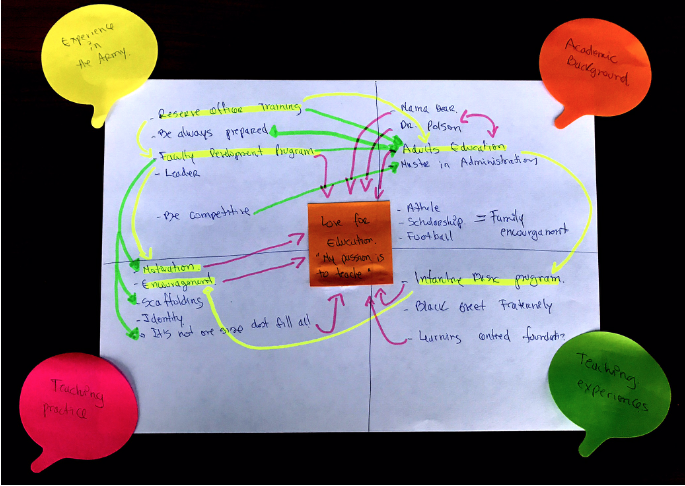 Experience
in
the Army.
Academic
Background
- Reserve Officer Training
- Be always prepared
- Faculty Development Program
- Leader
- Be competitive
Mama Bear.
Dr. Polson
Adults Education
Master in Administration
- Athlete
- Scholarship = Family
- Football encouragement
Love for
Education.
"My passion is
to teach."
- Motivation
- Encouragement
- Scaffolding
- Identity
It's not one size dost fill all
- Infantry Basic program.
- Black Greet Fraternity
- Learning centered foundation
Teaching
practice
Teaching
experiences